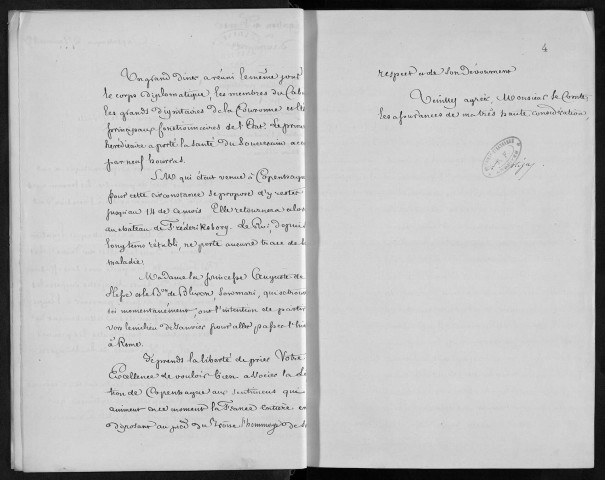 Un grand dîner a réuni le même jour
le corps diplomatique, les membres du Cabi
les grands dignitaires de la Couronne et les
principaux fonctionnaires de l'Etat. Le prince
héréditaire a porté la santé du Souverain acc
par neuf hourras.
S. M qui était venue à Copenhague
pour cette circonstance se propose d'y rester
jusqu'au 14 de ce mois. Elle retournera alors
au château de Fréderiksborg. Le Roi, depuis
longtems rétabli, ne porte aucune trace de la
maladie.
Madame la princesse Auguste de
Hesse et le Bon de Blixen, son mari, qui se trouv
ici momentanément, ont l'intention de partir
vers le milieu de Janvier pour aller passer l'hi
à Rome.
Je prends la liberté de prier Votre
Excellence de vouloir bien associer la
tion de Copenhague aux sentimens qui
animent en ce moment la France entière en
déposant au pied du Trône l'hommage de s
4
respect et de son dévouement
Veuillez agréer, Monsieur le Comte,
les assurances de ma très haute considération,